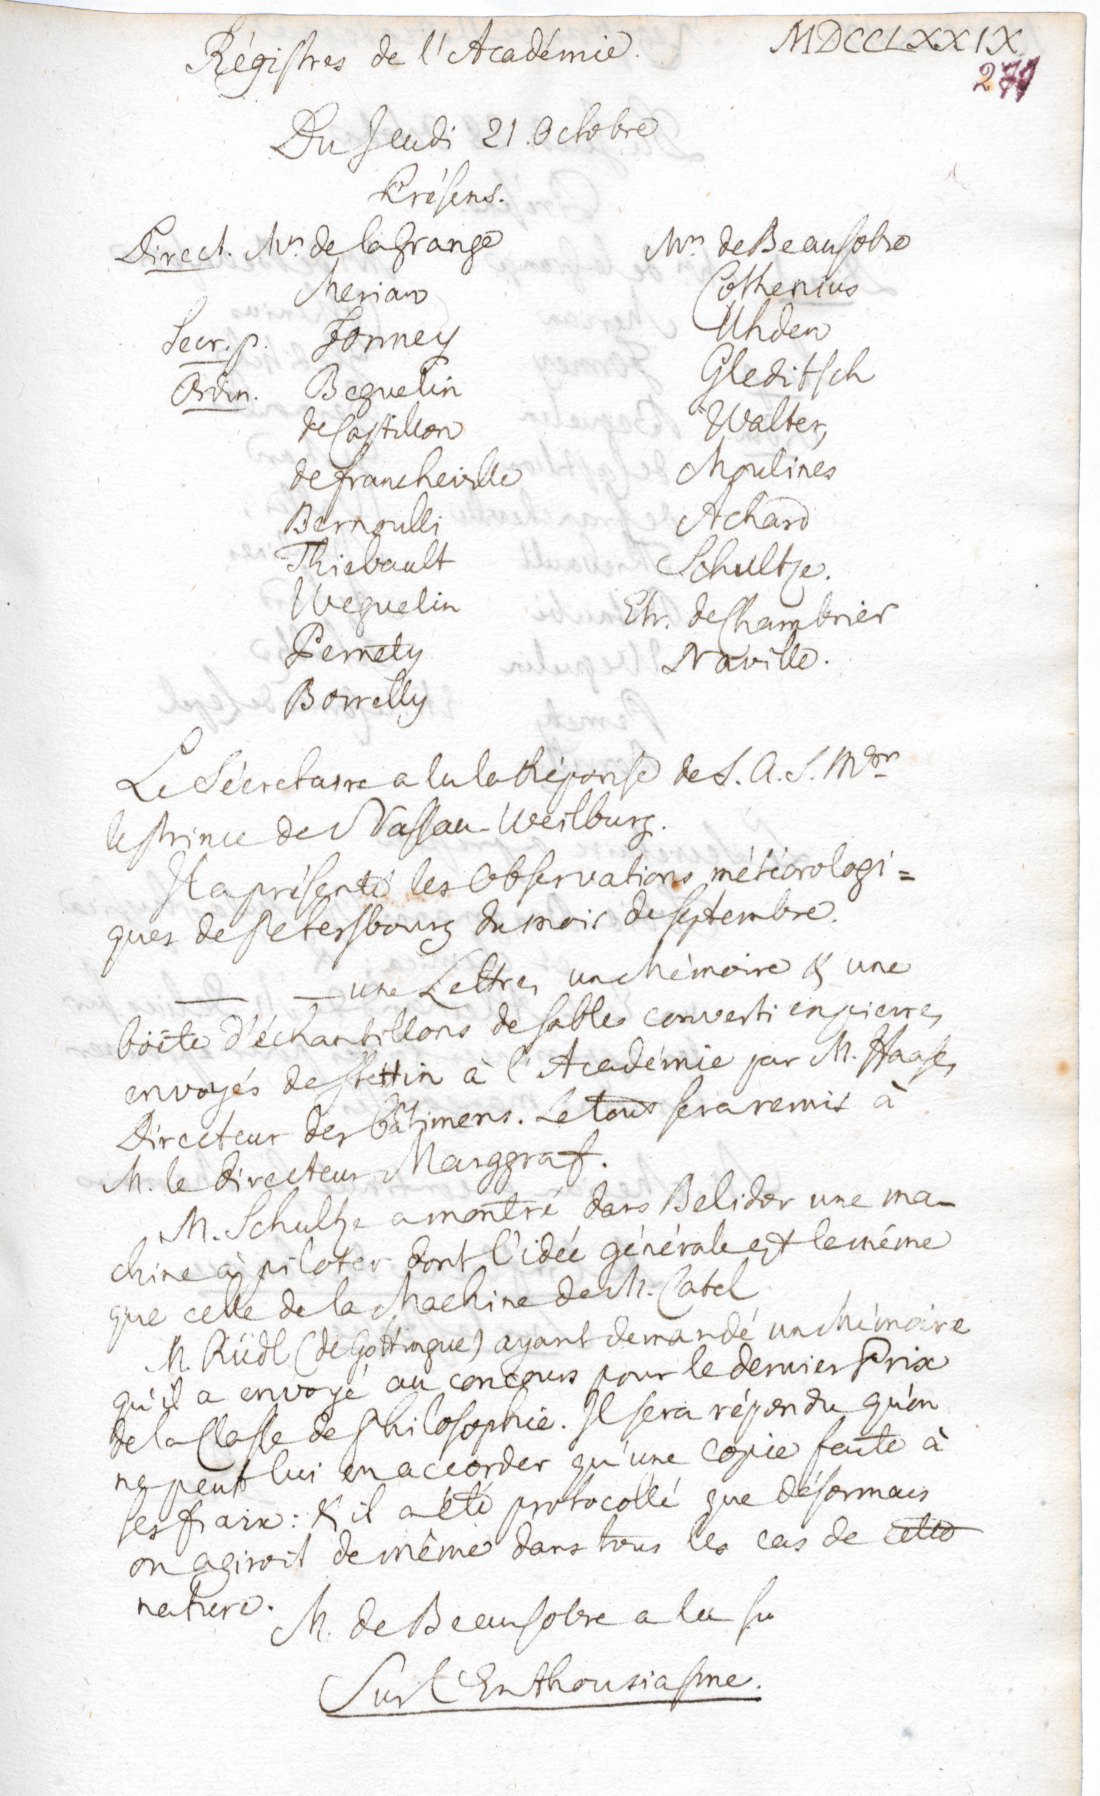 Régistres de l'Académie.
MDCCLXXIX
271
Du Jeudi 21. Octobre
Présens.
Direct. Mrs. de la Grange
Merian
Secr. p. Formey
Ordin. Beguelin
de Castillon
de Francheville
Bernoulli
Thiebault
Weguelin
Pernety
Borrelly
Mrs. de Beausobre
Cothenius
Uhden
Gleditsch
Walter,
Moulines
Achard
Schultze.
Etr. de Chambrier
Naville.
Le Sécretaire a lu la Réponse de S. A. S. Mgr
le Prince de Nassau-Weilburg.
Il a présenté les Observations météorologi=
ques de Petersbourg du mois de Septembre.
— — une Lettre, un Mémoire & une
boëte d'échantillons de sables converti en pierre,
envoyés de Stettin à l'Académie par M. Haase,
Directeur des bâtimens. Le tout sera remis à
M. le Directeur Marggraf.
M. Schultze a montré dans Belidor une ma-
chine à piloter dont l'idée générale est le même
que celle de la Machine de M. Catel
M. Rüdl (de Gottingue) ayant demandé un Mémoire
qu'il a envoyé au concours pour le dernier Prix
de la Classe de Philosophie. Il sera répondu qu'on
ne peut lui en accorder qu'une copie faite à
ses fraix: & il a été protocollé que désormais
on agiroit de même dans tous les cas de cette
nature.
M. de Beausobre a lu su
Sur l'Enthousiasme.